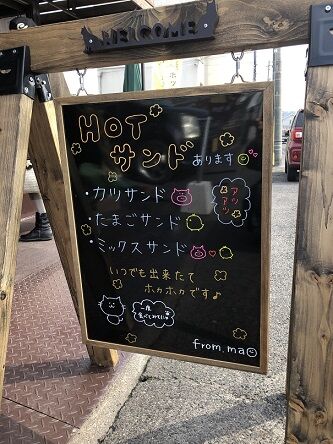 WELCOME
HOT
サンド あります
・カツサンド
アツアツ
・たまごサンド
・ミックスサンド
いつでも出来たて
ホカホカです♪
一度
食べてみてにゃ
from.ma